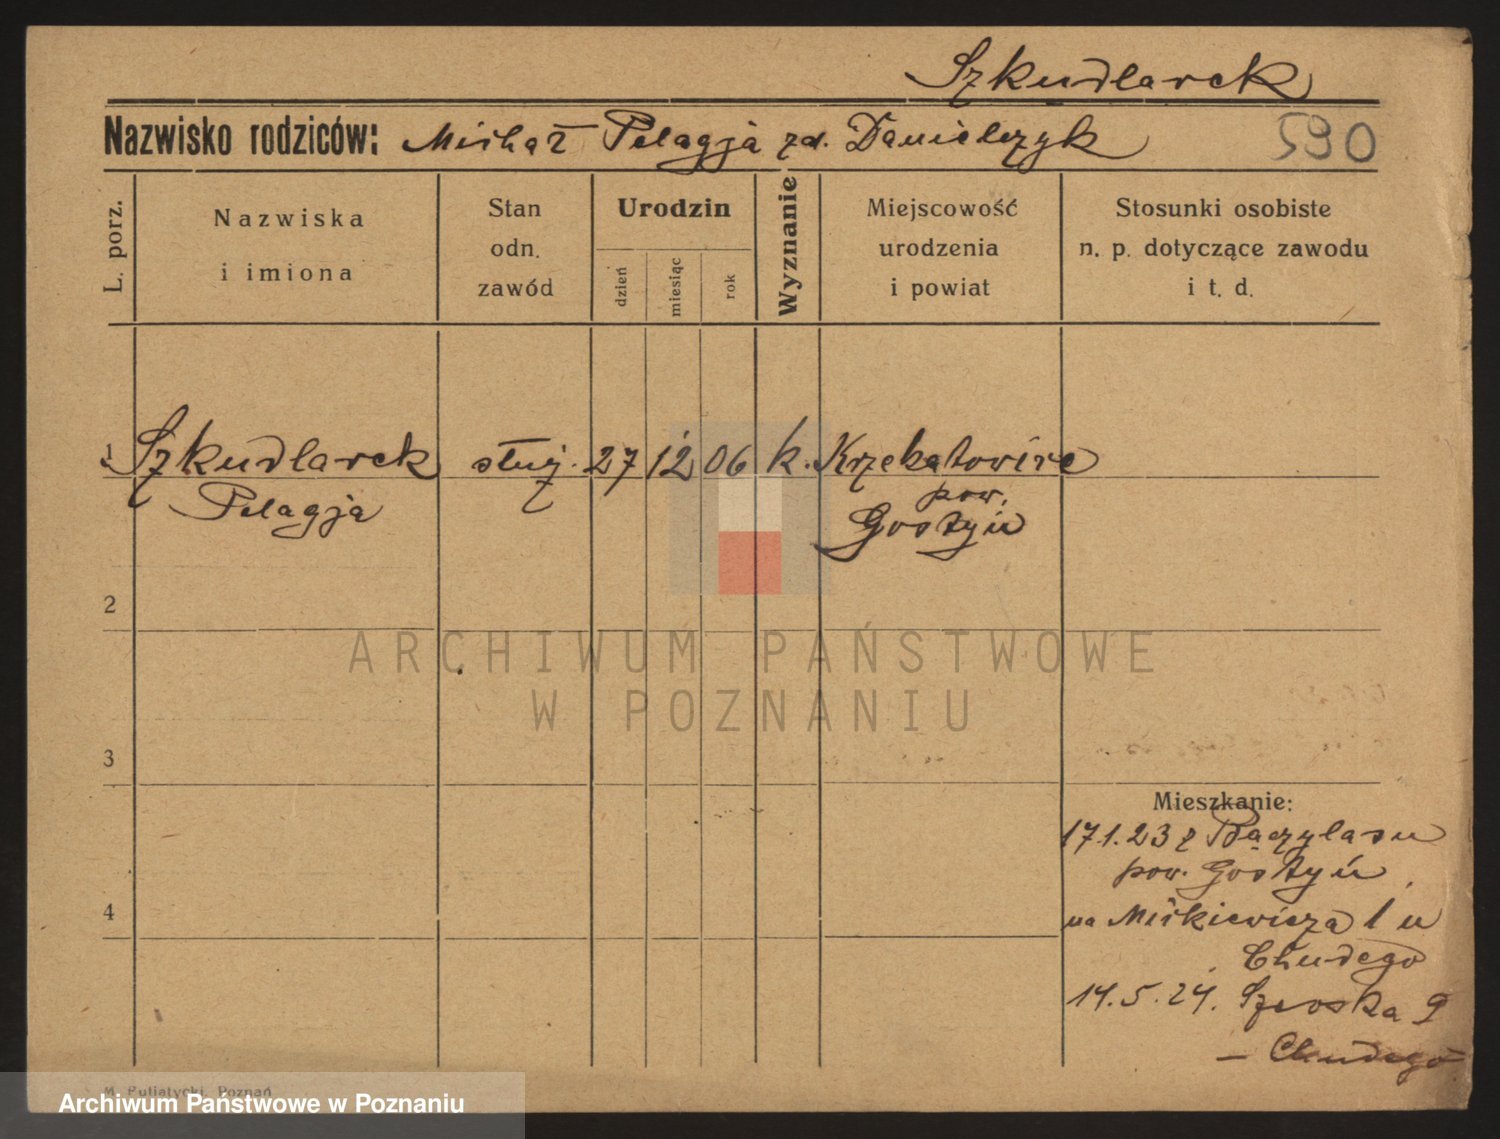 Szkudlarek
Nazwisko rodziców: Michał Pelagja zd. Danielczyk
590
L. porz.
Nazwiska
i imiona
Stan
odn.
zawód
Urodzin
dzień
miesiąc
rok
Wyznanie
Miejscowość
urodzenia
i powiat
Stosunki osobiste
n. p. dotyczące zawodu
i t. d.
1 Szkudlarek służ. 27 12 06 k. Krzekotowice
Pelagja pow.
Gostyń
2
ARCHIWUM PAŃSTWOWE
W POZNANIU
3
Mieszkanie:
17.1.23 z Bączylasu
pow. Gostyń
4
na Mickiewicza 1 u
Chudego
14.5.24. Szeroka 9
— Chudego
M. Putiatycki, Poznań
Archiwum Państwowe w Poznaniu